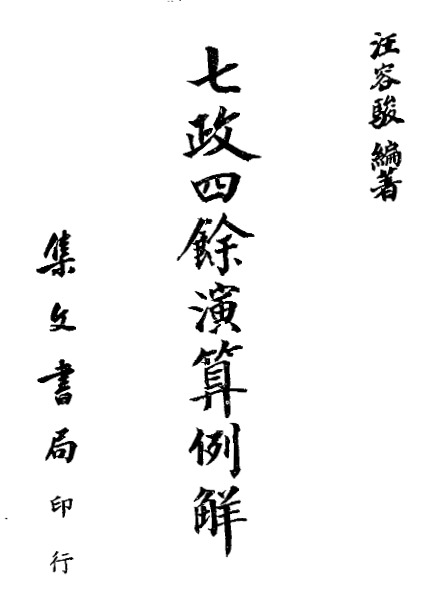 汪容駿編著
七政四餘演算例解
集文書局印行